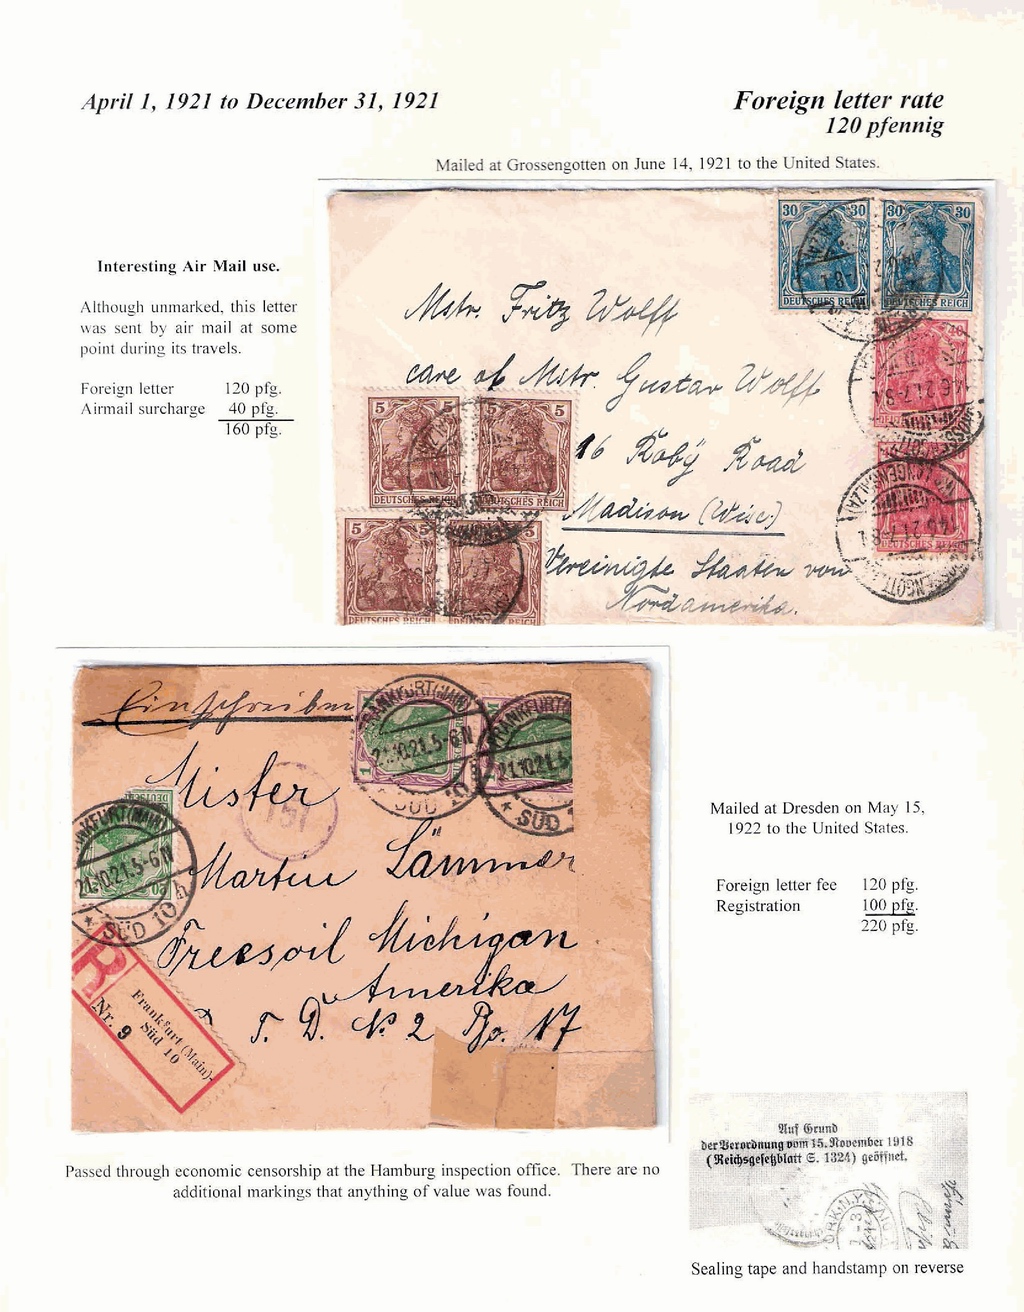 April 1, 1921 to December 31, 1921
Foreign letter rate
120 pfennig
Mailed at Grossengotten on June 14, 1921 to the United States.
Interesting Air Mail use.
Although unmarked, this letter
was sent by air mail at some
point during its travels.
Foreign letter 120 pfg.
Airmail surcharge 40 pfg.
160 pfg.
30 30 30 30
DEUTSCHES REICH
DEUTSCHES REICH
Mstr. Fritz Wolff
care of Mstr. Gustav Wolff
16 Roby Road
Madison (Wisc.)
Vereinigte Staaten von
Nordamerika.
5 5 5 5
DEUTSCHES REICH
DEUTSCHES REICH
5 5 5
DEUTSCHES REICH
Einschreiben
FRANKFURT (MAIN)
21.10.21.5-6N
* SÜD 10
FRANKFURT (MAIN)
21.10.21.5-6N
* SÜD 10
Mister
Martin Lämmer
Freesoil Michigan
Amerika
R. F. D. No 2 Bo. 17
R
Frankfurt (Main)
Süd 10
Nr. 9
Mailed at Dresden on May 15,
1922 to the United States.
Foreign letter fee 120 pfg.
Registration 100 pfg.
220 pfg.
Passed through economic censorship at the Hamburg inspection office. There are no
additional markings that anything of value was found.
Auf Grund
der Verordnung vom 15. November 1918
(Reichsgesetzblatt S. 1324) geöffnet.
Sealing tape and handstamp on reverse